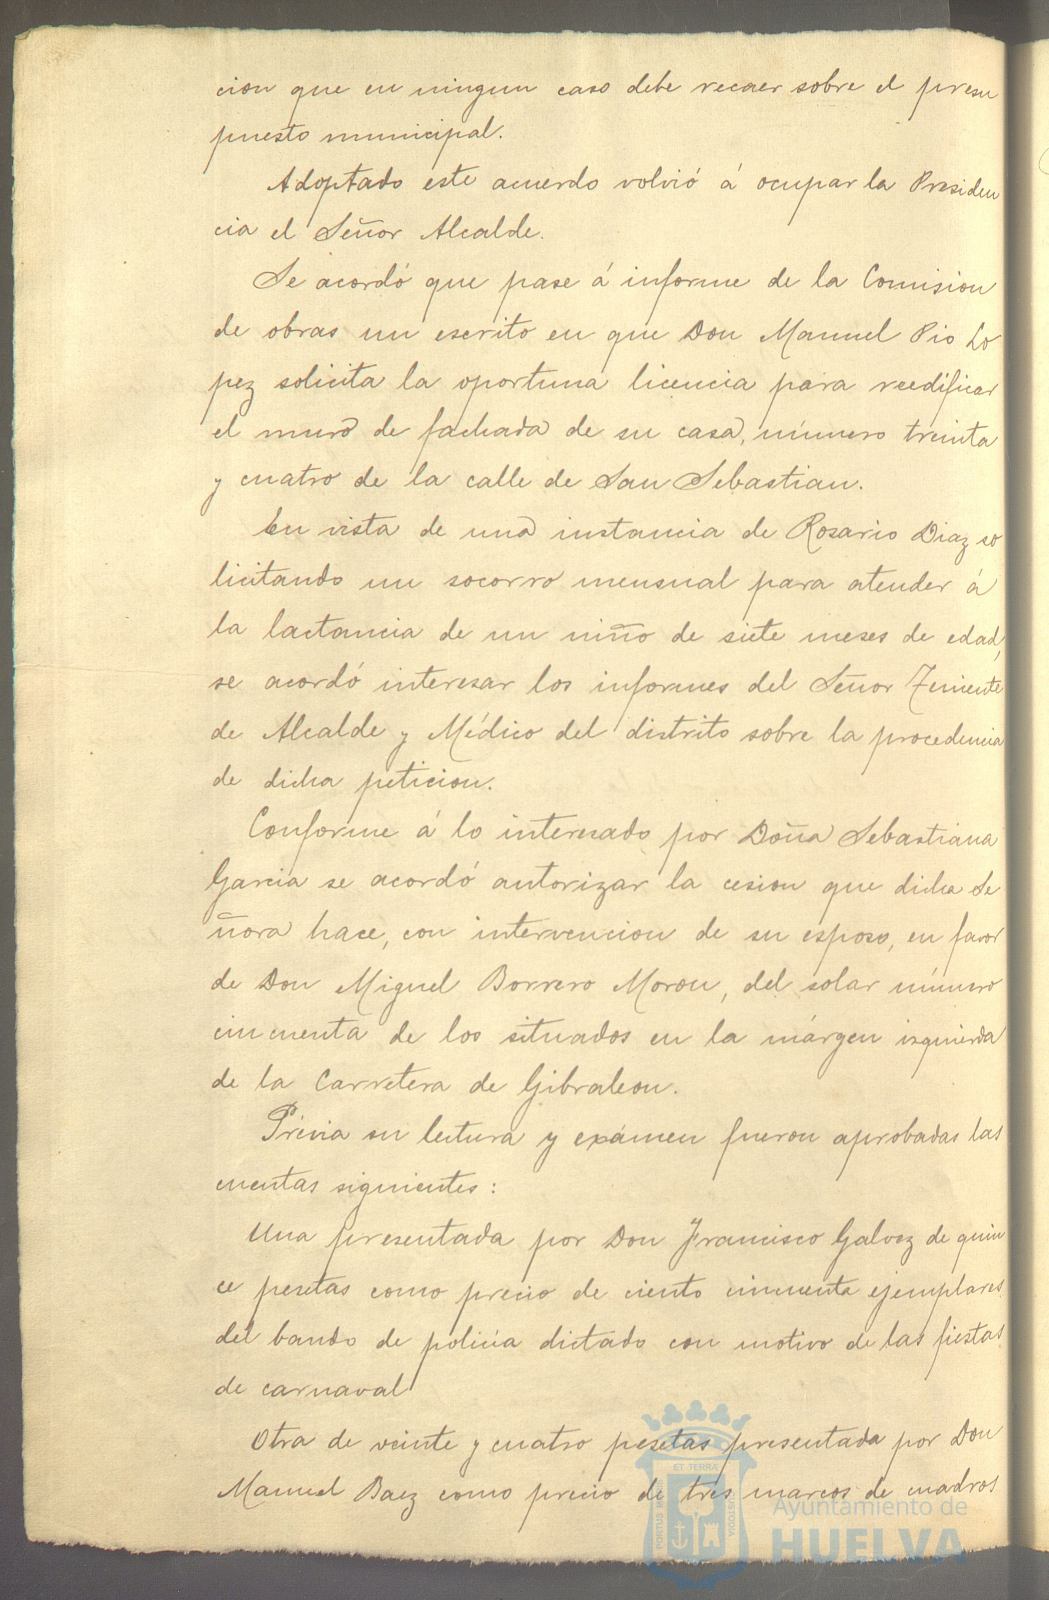 cion que en ningun caso debe recaer sobre el presu
puesto municipal.
Adoptado este acuerdo volvió á ocupar la Presiden
cia el Señor Alcalde.
Se acordó que pase á informe de la Comision
de obras un escrito en que Don Manuel Pio Lo
pez solicita la oportuna licencia para reedificar
el muro de fachada de su casa, número treinta
y cuatro de la calle de San Sebastian.
En vista de una instancia de Rosario Diaz so
licitando un socorro mensual para atender á
la lactancia de un niño de siete meses de edad,
se acordó interesar los informes del Señor Teniente
de Alcalde y Médico del distrito sobre la procedencia
de dicha peticion.
Conforme á lo interesado por Doña Sebastiana
Garcia se acordó autorizar la cesion que dicha Se
ñora hace, con intervencion de su esposo, en favor
de Don Miguel Borrero Moron, del solar número
cincuenta de los situados en la márgen izquierda
de la Carretera de Gibraleon.
Prévia su lectura y exámen fueron aprobadas las
cuentas siguientes:
Una presentada por Don Francisco Galvez de quin
ce pesetas como precio de ciento cincuenta ejemplares
del bando de policia dictado con motivo de las fiestas
de carnaval
Otra de veinte y cuatro pesetas presentada por Don
Manuel Baez como precio de tres marcos de cuadros
PORTUS MARIS ET TERRÆ CUSTODIA
Ayuntamiento de
HUELVA